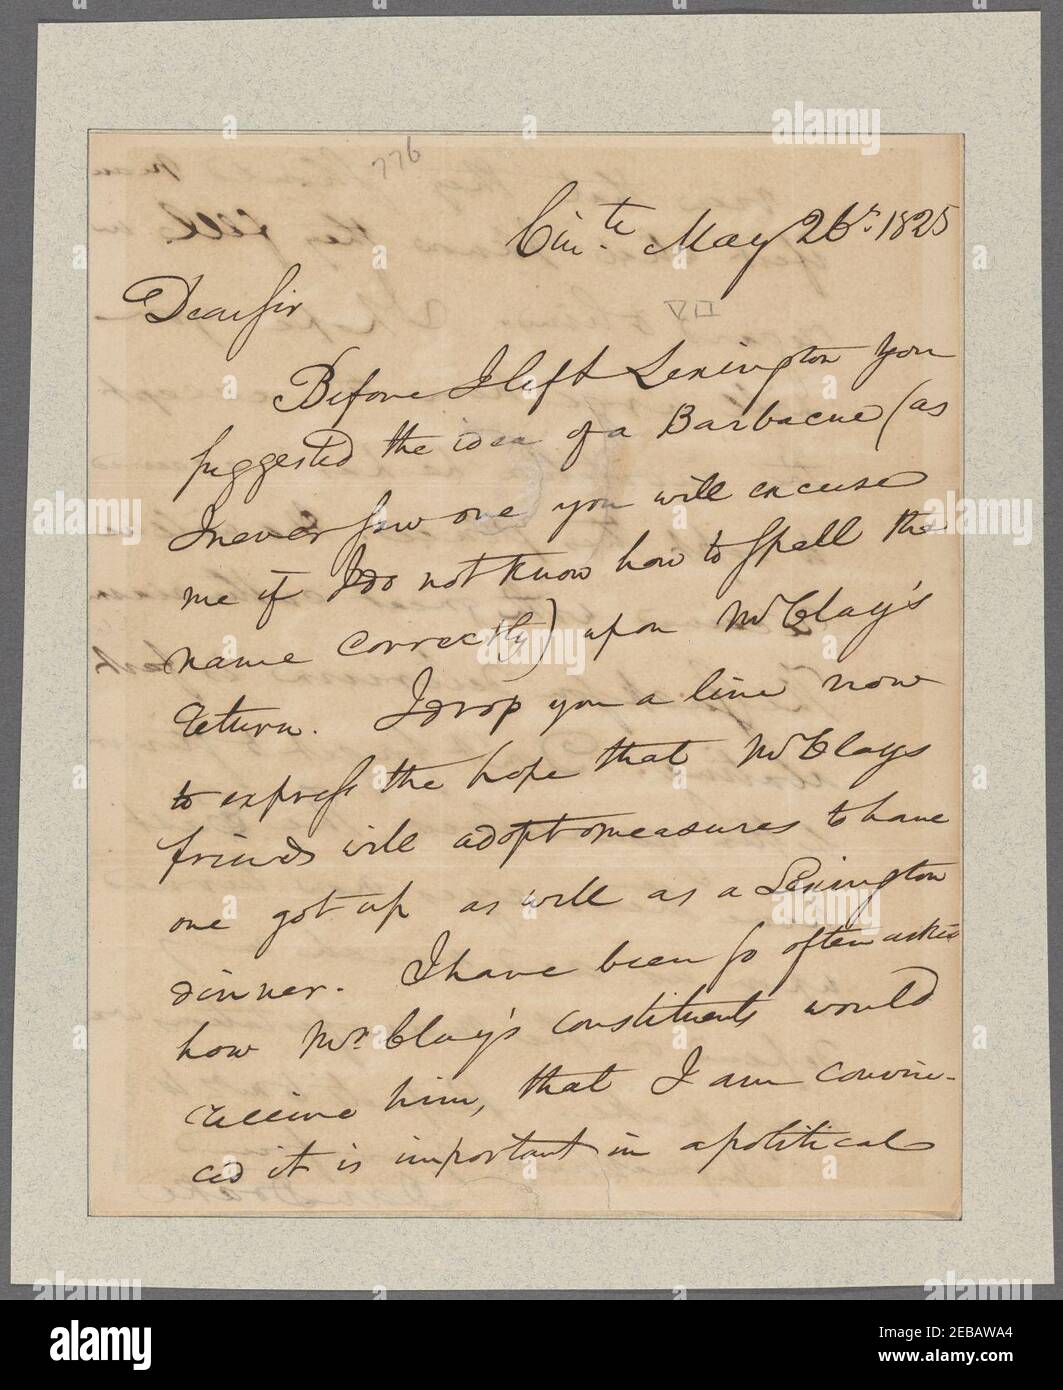 776
Cin.te May 26th. 1825
Dear Sir
Before I left Lexington you
suggested the idea of a Barbacue (as
I never saw one you will excuse
me if I do not know how to spell the
name correctly) upon Mr Clay's
return. I drop you a line now
to express the hope that Mr Clays
friends will adopt measures to have
one got up as will as a Lexington
dinner. I have been so often asked
how Mr. Clay's constituents would
receive him, that I am convinc-
ed it is important in a political
alamy
Image ID: 2EBAWA4
www.alamy.com